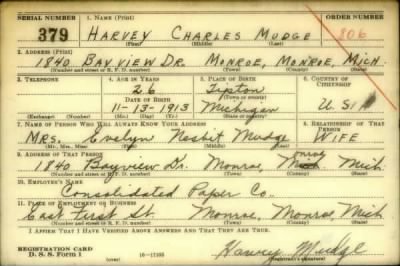 SERIAL NUMBER 1. NAME (Print) ORDER NUMBER
379 HARVEY CHARLES MUDGE 806
(First) (Middle) (Last)
2. ADDRESS (Print)
1840 BAYVIEW DR. MONROE, MONROE, MICH.
(Number and street or R. F. D. number) (Town) (County) (State)
3. TELEPHONE 4. AGE IN YEARS 5. PLACE OF BIRTH 6. COUNTRY OF CITIZENSHIP
26 Tipton
DATE OF BIRTH (Town or county)
11-13-1913 Michigan U.S.A
(Exchange) (Number) (Mo.) (Day) (Yr.) (State or country)
7. NAME OF PERSON WHO WILL ALWAYS KNOW YOUR ADDRESS 8. RELATIONSHIP OF THAT PERSON
MRS. Evelyn Nesbit Mudge WIFE
(Mr., Mrs., Miss) (First) (Middle) (Last)
9. ADDRESS OF THAT PERSON
1840 Bayview Dr. Monroe, Monroe Mich
(Number and street or R. F. D. number) (Town) (County) (State)
10. EMPLOYER'S NAME
Consolidated Paper Co.
11. PLACE OF EMPLOYMENT OR BUSINESS
East First St. Monroe, Monroe, Mich
(Number and street or R. F. D. number) (Town) (County) (State)
I AFFIRM THAT I HAVE VERIFIED ABOVE ANSWERS AND THAT THEY ARE TRUE.
REGISTRATION CARD
D. S. S. Form 1 16-17105 Harvey Mudge
(Registrant's signature)